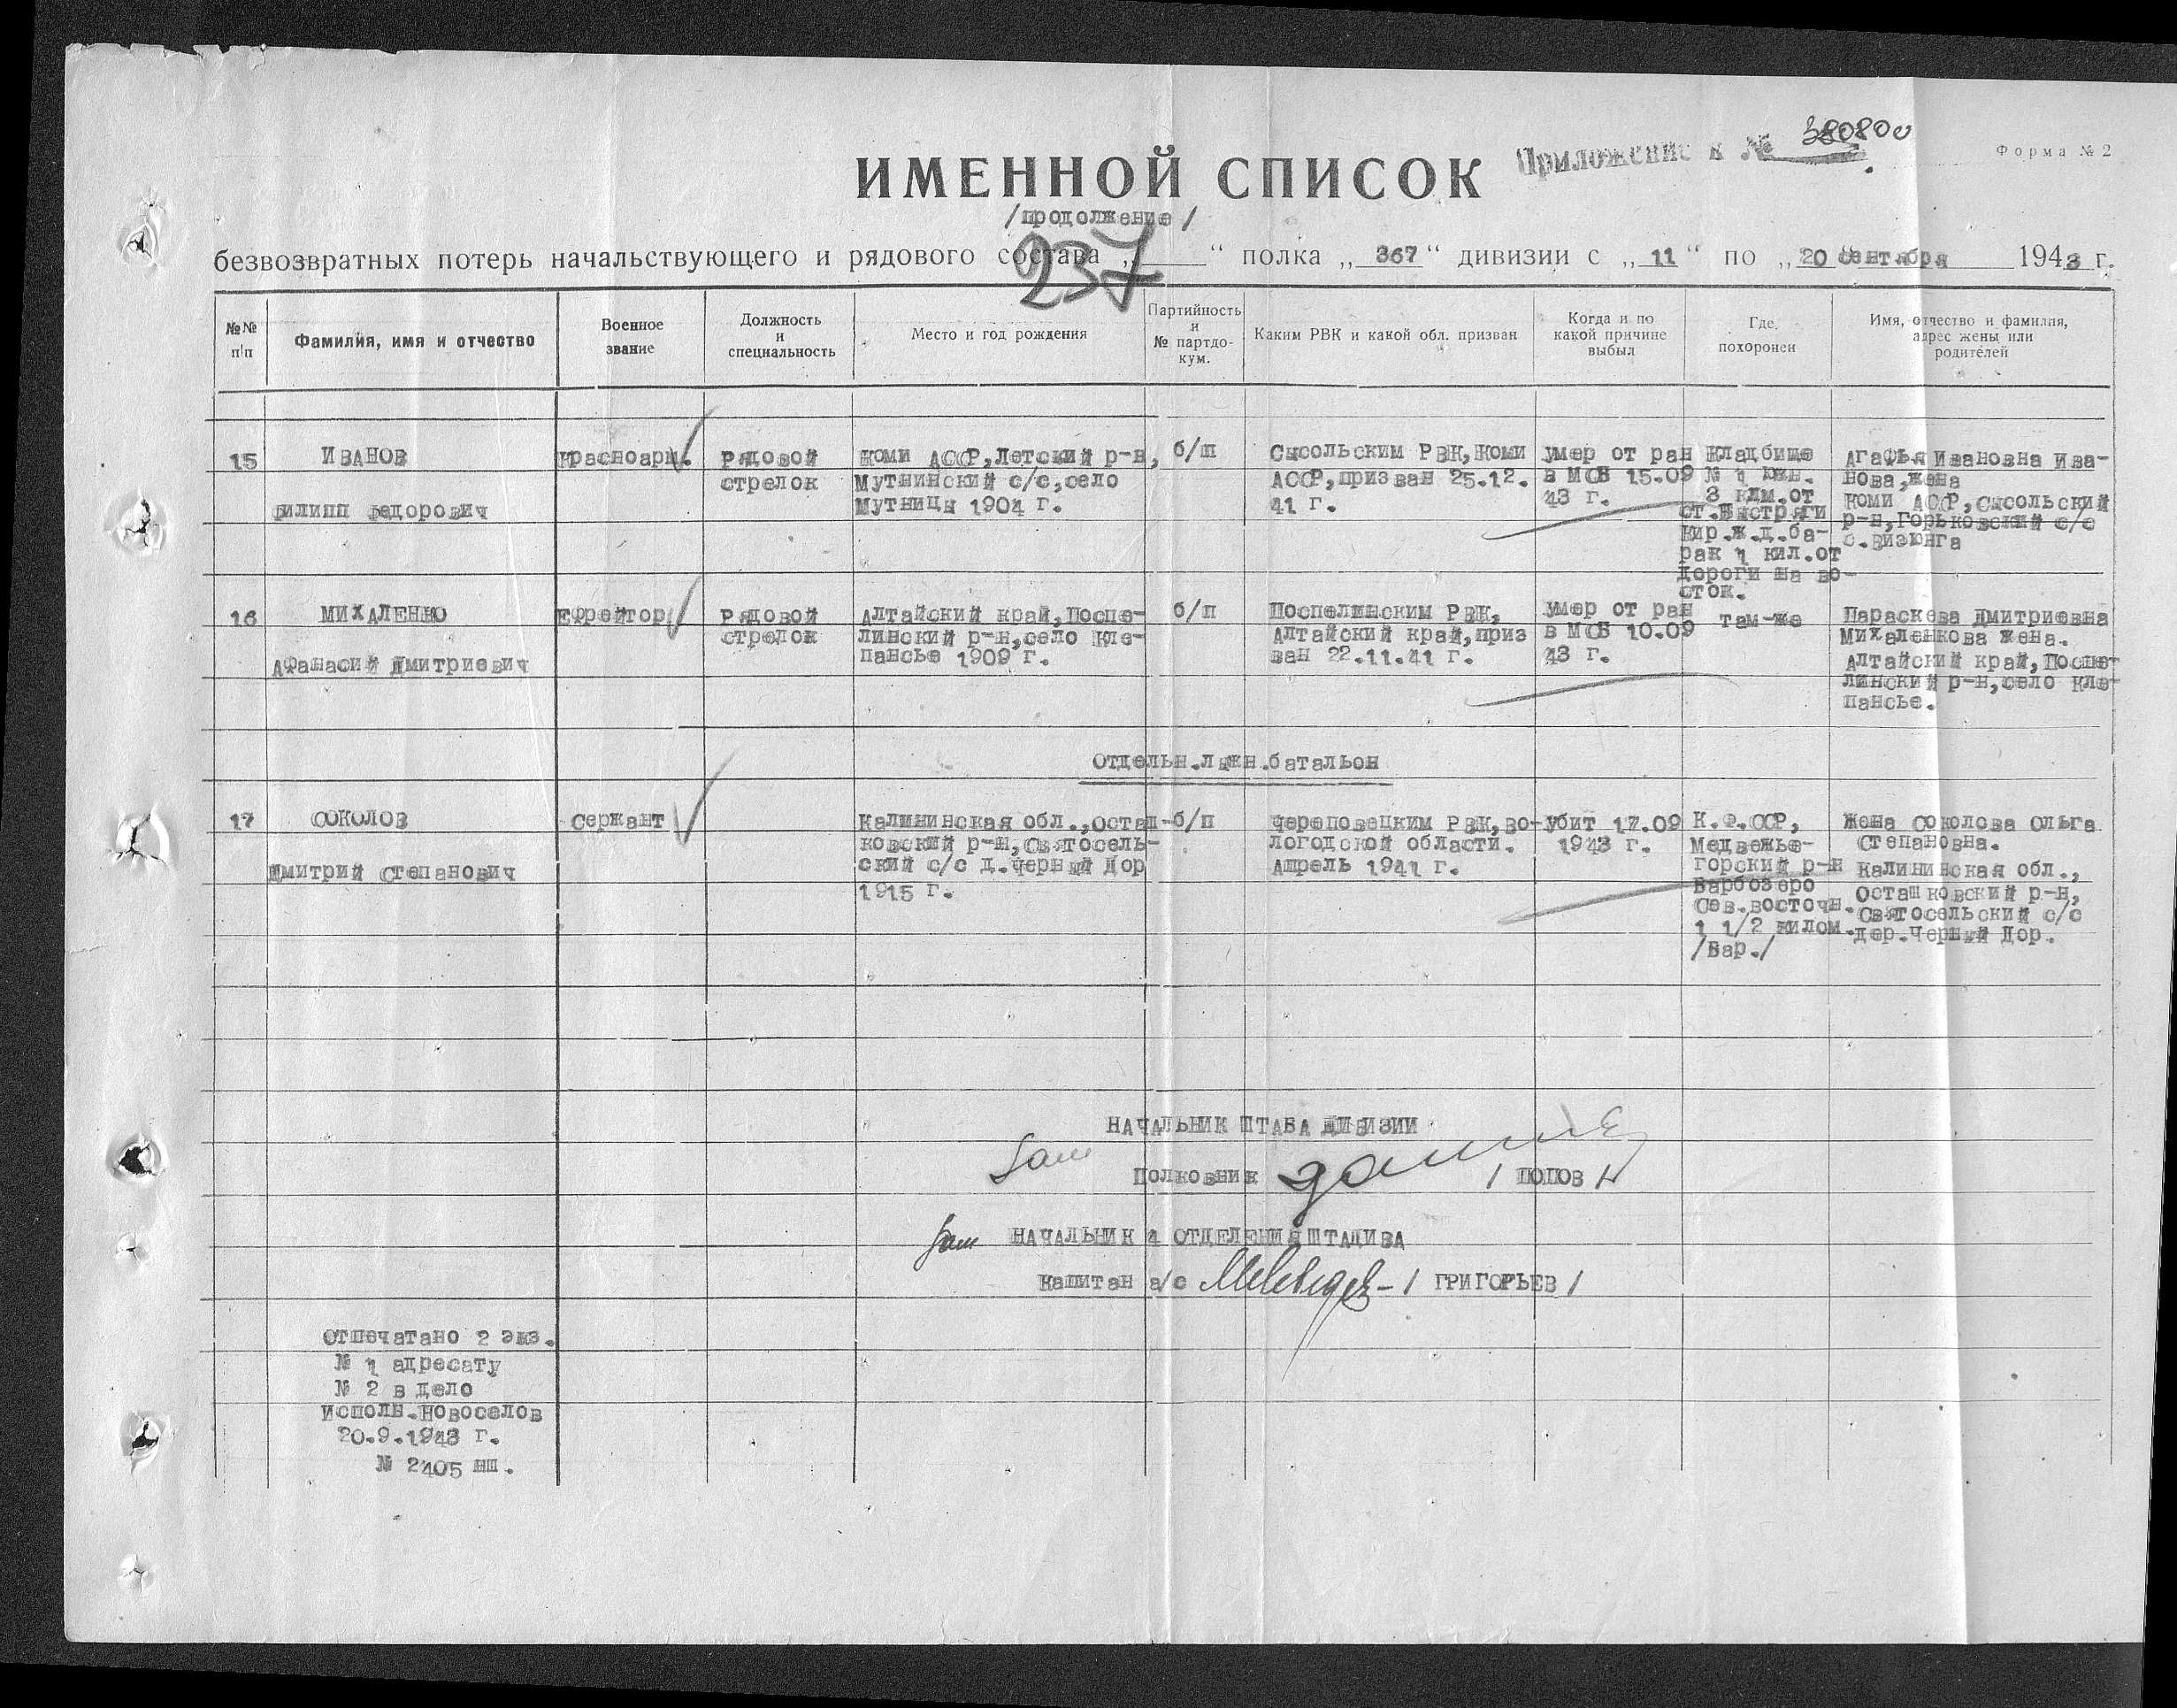 ИМЕННОЙ СПИСОК
Приложение к №
380800
Форма № 2
/продолжение/
безвозвратных потерь начальствующего и рядового состава „ “ полка „ 367 “ дивизии с „ 11 “ по „ 20 сентября 1943 г.
237
№№ п/п
Фамилия, имя и отчество
Военное звание
Должность и специальность
Место и год рождения
Партийность и № партдо-кум.
Каким РВК и какой обл. призван
Когда и по какой причине выбыл
Где похоронен
Имя, отчество и фамилия, адрес жены или родителей
15
ИВАНОВ
Филипп Федорович
Красноарм.
Рядовой
стрелок
Коми АССР, Летский р-н,
Мутнинский с/с, село
Мутницы 1904 г.
б/п
Сысольским РВК, Коми
АССР, призван 25.12.
41 г.
умер от ран
в МСБ 15.09
43 г.
Кладбище
№ 1 юж.
3 клм. от
ст. Быстряги
Кир.ж.д. ба-
рак 1 кил. от
дороги на во-
сток.
Агафья Ивановна Ива-
нова, жена
Коми АССР, Сысольский
р-н, Горьковский с/с
с. Визюнга
16
МИХАЛЕНКО
Афанасий Дмитриевич
Ефрейтор
Рядовой
стрелок
Алтайский край, Поспе-
линский р-н, село Кле-
пансье 1909 г.
б/п
Поспелинским РВК,
Алтайский край, приз
ван 22.11.41 г.
умер от ран
в МСБ 10.09
43 г.
там-же
Параскева Дмитриевна
Михаленкова жена.
Алтайский край, Поспе-
линский р-н, село Кле-
пансье.
Отдельн.лыжн.батальон
17
СОКОЛОВ
Дмитрий Степанович
Сержант
Калининская обл., Осташ-
ковский р-н, Святосель-
ский с/с д. Черный Дор
1915 г.
б/п
Череповецким РВК, Во-
логодской области.
Апрель 1941 г.
Убит 17.09
1943 г.
К.Ф.ССР,
Медвежье-
горский р-н
Варбозеро
Сев.восточн.
1 1/2 килом.
/Вар./
Жена Соколова Ольга
Степановна.
Калининская обл.,
Осташковский р-н,
Святосельский с/с
дер.Черный Дор.
НАЧАЛЬНИК ШТАБА ДИВИЗИИ
Зам
Полковник
/ ПОПОВ /
Зам
НАЧАЛЬНИК 4 ОТДЕЛЕНИЯ ШТАДИВА
Капитан а/с
/ ГРИГОРЬЕВ /
Отпечатано 2 экз.
№ 1 адресату
№ 2 в дело
Исполн.Новоселов
20.9.1943 г.
№ 2405 нш.